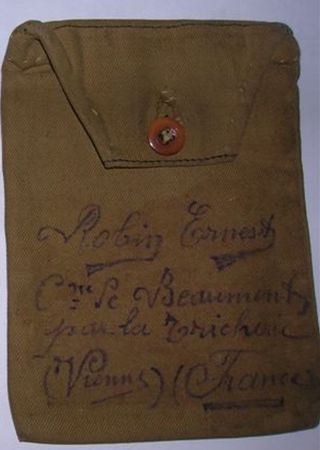 Robin Ernest
Cne de Beaumont
par la Tricherie
(Vienne) (France)